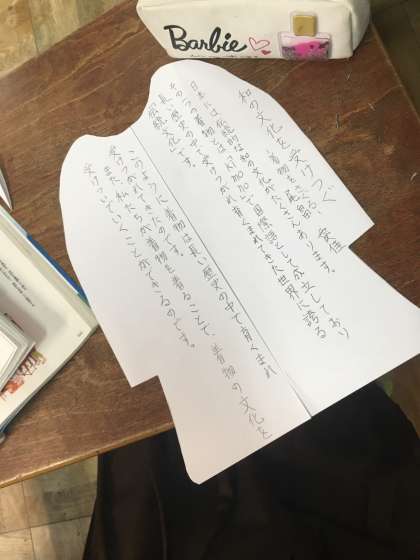 Barbie
和の文化を受けつぐ
着物を
日本には、伝統的な和の文化がたくさんあります。
その一つの着物とは「KIMONO」で国際語として成立しており
長い歴史の中で受けつがれ育くまれてきた世界に誇る
伝統文化です。
このように、着物は長い歴史の中で育くまれ
受けつがれてきたのです。
また、私たちが着物を着ることで、着物の文化を
受けついでいくことができるのです。